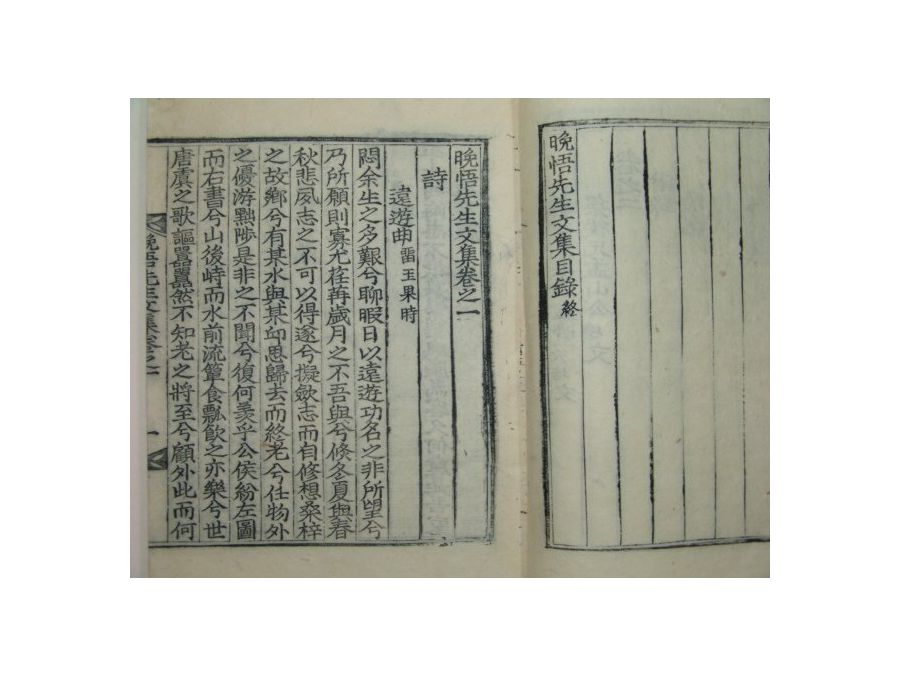 晩悟先生文集目錄 終
晩悟先生文集卷之一
詩
遠遊曲 留玉果時
悶余生之多艱兮聊暇日以遠遊功名之非所望兮
乃所願則寡尤荏苒歲月之不吾與兮倏冬夏與春
秋悲夙志之不可以得遂兮擬斂志而自修想桑梓
之故鄕兮有某水與某丘思歸去而終老兮任物外
之優游黜陟是非之不聞兮復何羨乎公侯紛左圖
而右書兮山後峙而水前流簞食瓢飮之亦樂兮世
唐虞之歌謳囂囂然不知老之將至兮顧外此而何
晩悟先生文集卷之一 一